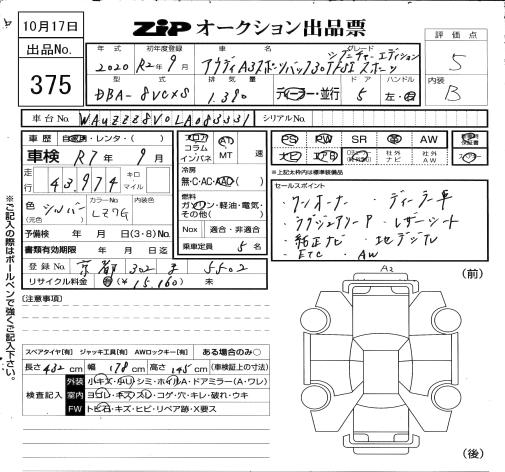 10月17日
ZIP オークション出品票
出品No.
375
評価点
5
内装
B
年式
2020
初年度登録
R2年9月
車名
アウディA3スポーツバック30TFSI スポーツ
グレード
シグニチャーエディション
型式
DBA-8VCXS
排気量
1.390
ディーラー・並行
ドア
5
ハンドル
左・右
車台No.
WAUZZZ8V0LA083331
シリアルNo.
車歴
自家用・レンタ・( )
車検 R7年9月
走行
43,974
キロ
マイル
色
(元色)
シルバー
カラーNo.
LZ7G
内装色
予備検 年 月 日(3・8)No.
書類有効期限 年 月 日迄
登録No. 京都 302 る 5502
リサイクル料金 有(¥ 15,160) 未
フロア
コラム
インパネ
AT
MT
速
冷房
無・C・AC・AAC( )
燃料
ガソリン・軽油・電気・
その他( )
Nox
適合・非適合
乗車定員 5名
PS PW SR 革 AW
ナビ エアB
社外
ナビ
社外
AW
保証書
※上記太枠内は標準装備品
セールスポイント
・ワンオーナー ・ディーラー車
・レザーシート
・純正ナビ ・地デジTV
・ETC ・AW
※ご記入の際はボールペンで強くご記入下さい。
(注意事項)
スペアタイヤ[有] ジャッキ工具[有] AWロックキー[有] ある場合のみ○
長さ432cm 幅178cm 高さ145cm (車検証上の寸法)
検査記入
外装 小キズ・小リ・シミ・ホイルA・ドアミラー(A・ワレ)
室内 ヨゴレ・キズ・スレ・コゲ・穴・キレ・破れ・ウキ
FW トビ石・キズ・ヒビ・リペア跡・X要ス
A2
(前)
(後)